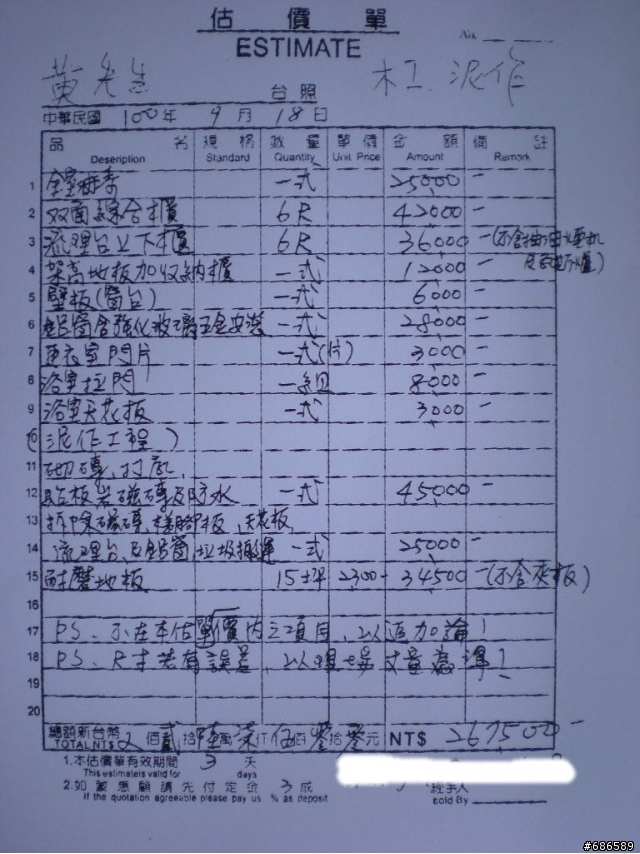 估價單
ESTIMATE
No.
黃先生 台照 木工.泥作
中華民國 100年 9月 18日
品名 規格 數量 單價 金額 備註
Deseription Standard Quantity Unit Price Amount Remark
1 一式 25000 -
2 双面綜合櫃 6尺 42000 -
3 流理台上下櫃 6尺 36,000 - (不含抽油煙機
4 架高地板加收納櫃 一式 12000 -
5 壁板(窗台) 一式 6000 -
6 鋁窗含強化玻璃五金安裝 一式 28000 -
7 更衣室門片 一式(片) 3000 -
8 浴室拉門 一組 8000 -
9 浴室天花板 一式 3000 -
10 (泥作工程)
11 砌磚.打底.
12 貼板岩磁磚及防水 一式 45000 -
13 拆除磁磚.踢腳板.天花板
14 流理台.及鋁窗.垃圾搬運 一式 25000 -
15 耐磨地板 15坪 2300- 34500 - (不含夾板)
16
17 PS、不在本估價內之項目,以追加論!
18 PS、尺寸若有誤差,以現場丈量為準!
19
20
總額新台幣 2佰貳拾陸萬柒仟伍佰零拾零元 NT$ 267500-
TOTAL NT$
1.本估價單有效期間 3 天
This estimate is valid for days
2.如蒙惠顧請先付定金 3 成 經手人
If the quotation agreeable please pay us % as deposit sold By
#686589